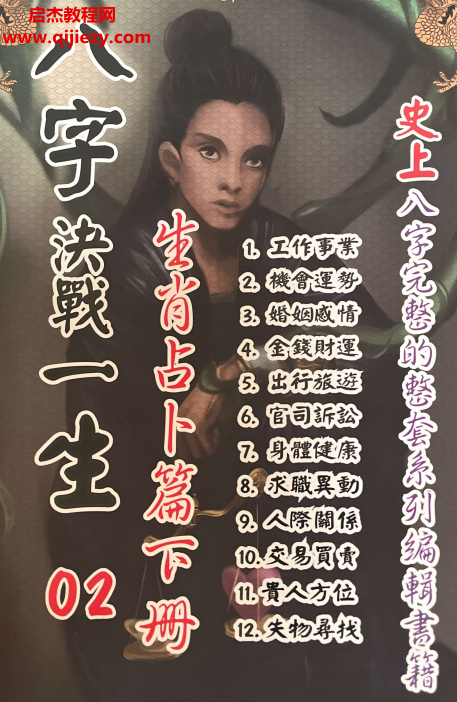 启杰教程网
www.qijiezy.com
史上八字完整的整套系列編輯書籍
八字決戰一生 02
生肖占卜篇下册
1. 工作事業
2. 機會運勢
3. 婚姻感情
4. 金錢財運
5. 出行旅遊
6. 官司訴訟
7. 身體健康
8. 求職異動
9. 人際關係
10. 交易買賣
11. 貴人方位
12. 失物尋找